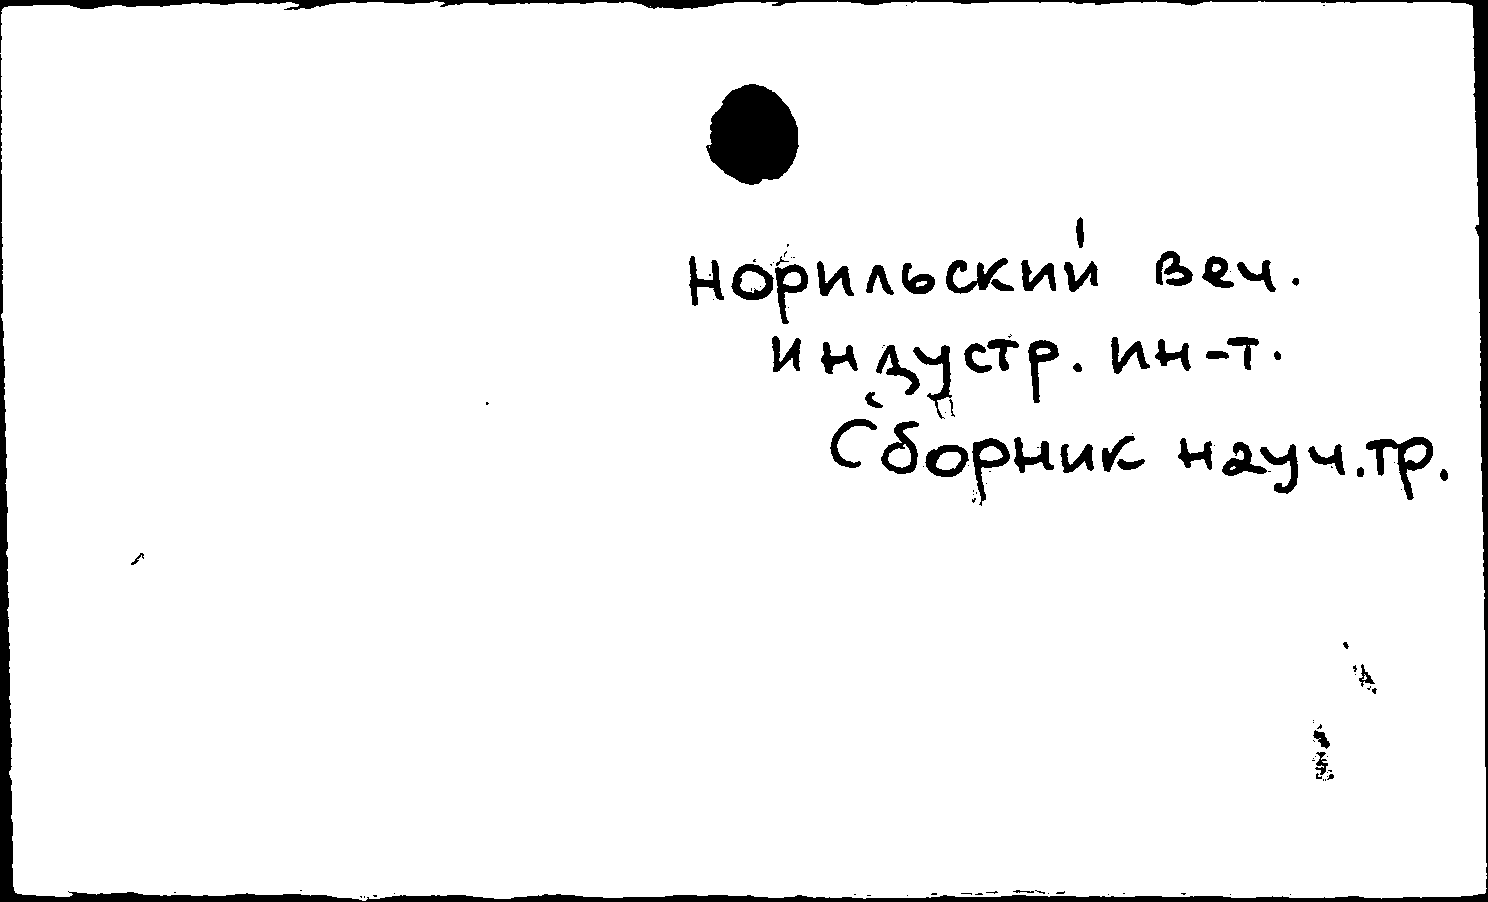 Норильский веч.
индустр. ин-т.
Сборник науч.тр.